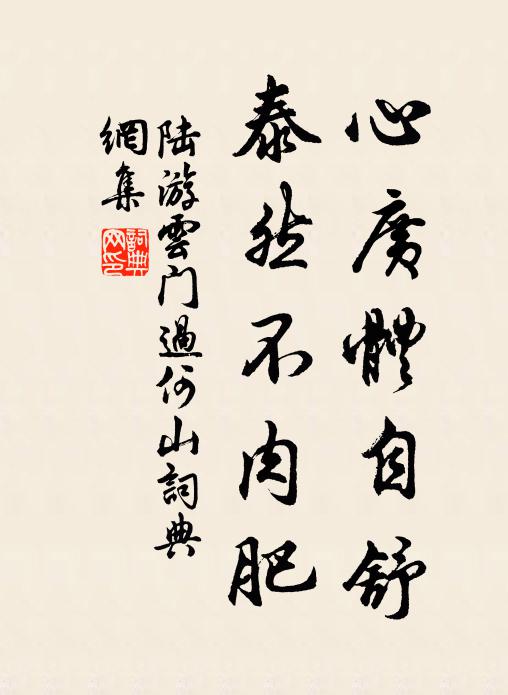 心廣體自舒
泰然不肉肥
陸游雲門過何山詞典
網集
詞典
網印